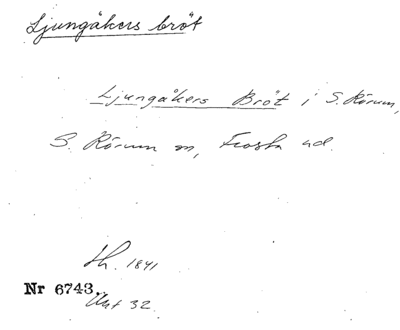 Ljungåkers bröt
Ljungåkers Bröt i S. Rörum,
S. Rörum sn, Frosta hd.
Lh. 1841
Nr 6743.
Akt 32